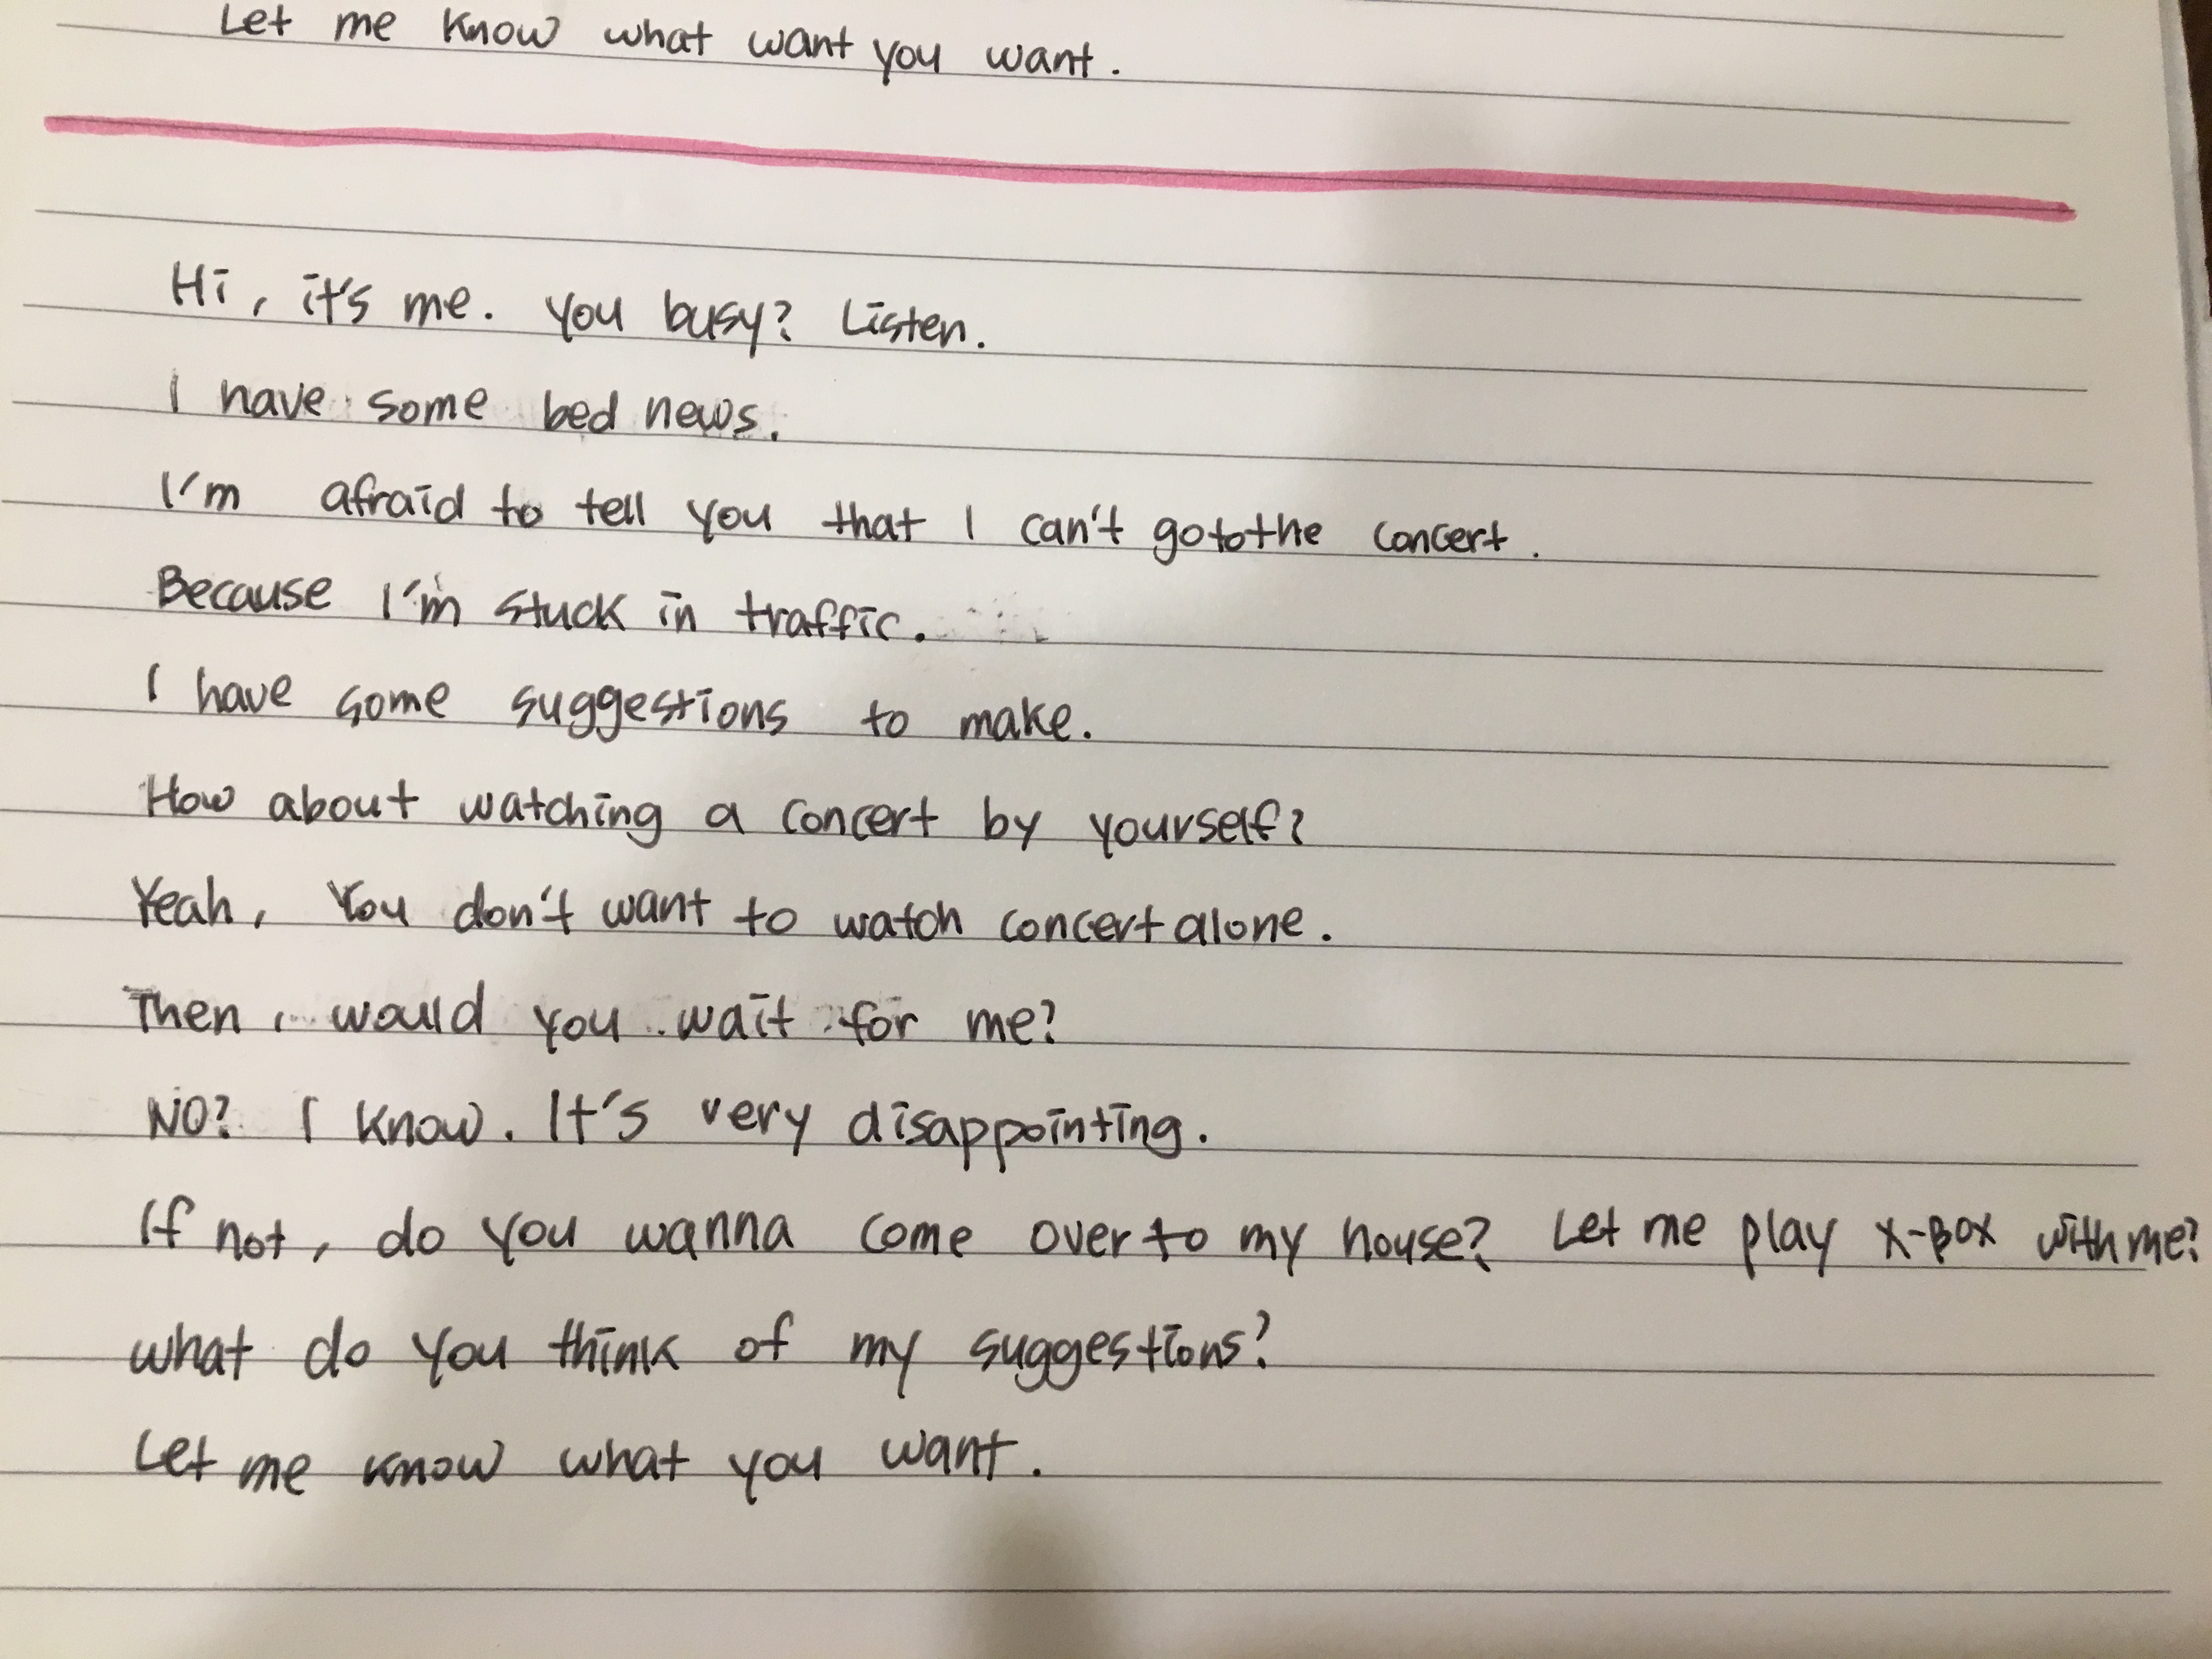 Let me know what want you want.
Hi, it's me. You busy? Listen.
I have some bed news.
I'm afraid to tell you that I can't go to the concert.
Because I'm stuck in traffic.
I have some suggestions to make.
How about watching a concert by yourself?
Yeah, You don't want to watch concert alone.
Then, would you wait for me?
NO? I know. It's very disappointing.
If not, do you wanna come over to my house? Let me play X-BOX with me?
what do you think of my suggestions?
Let me know what you want.